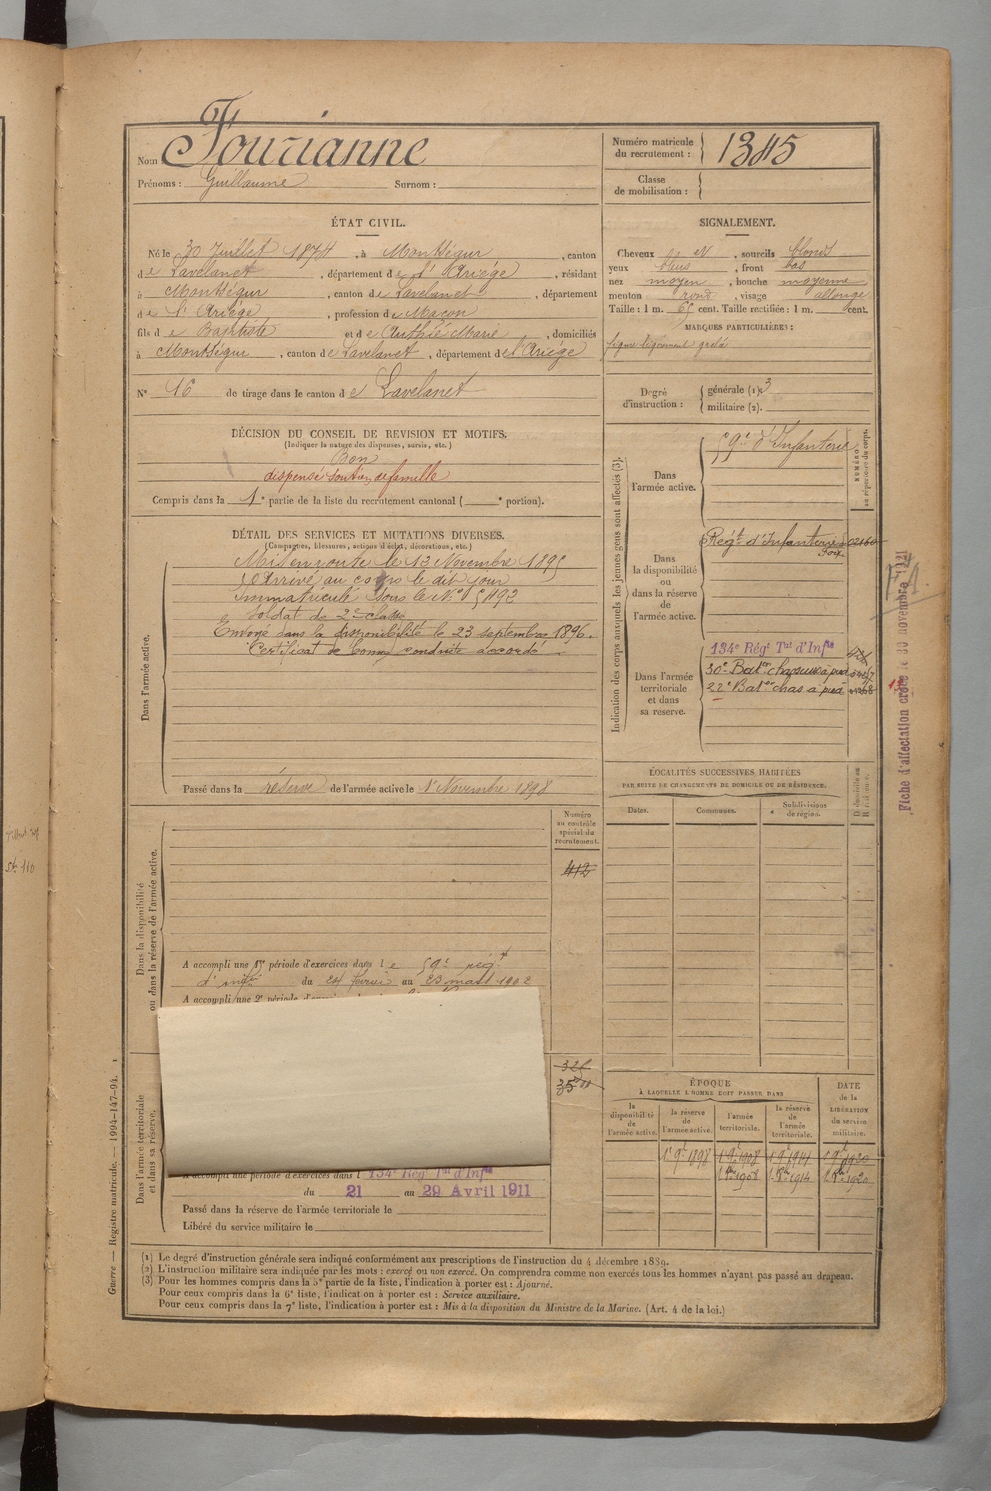 Nom Fourianne
Prénoms : Guillaume Surnom :
Numéro matricule du recrutement : 1345
Classe de mobilisation :
ÉTAT CIVIL.
Né le 30 Juillet 1874, à Montségur, canton
de Lavelanet, département de l'Ariège, résidant
à Montségur, canton de Lavelanet, département
de l'Ariège, profession de Maçon
fils de Baptiste et de Authié Marie, domiciliés
à Montségur, canton de Lavelanet, département de l'Ariège
N° 16 de tirage dans le canton de Lavelanet
DÉCISION DU CONSEIL DE REVISION ET MOTIFS.
(Indiquer la nature des dispenses, sursis, etc.)
Bon
dispensé soutien de famille
Compris dans la 1e partie de la liste du recrutement cantonal ( e portion).
DÉTAIL DES SERVICES ET MUTATIONS DIVERSES.
(Campagnes, blessures, actions d'éclat, décorations, etc.)
Dans l'armée active.
Mis en route le 13 Novembre 1895
Arrivé au corps le dit jour
Immatriculé sous le N°
Soldat de 2e classe
Envoyé dans la disponibilité le 23 septembre 1896.
Certificat de bonne conduite accordé
Passé dans la réserve de l'armée active le 1er Novembre 1898
SIGNALEMENT.
Cheveux , sourcils blonds
yeux bleus, front bas
nez moyen, bouche moyenne
menton rond, visage allongé
Taille : 1 m. 65 cent. Taille rectifiée : 1 m. cent.
MARQUES PARTICULIÈRES :
figure légèrement grelé
Degré d'instruction :
générale (1). 3
militaire (2).
Indication des corps auxquels les jeunes gens sont affectés (3).
NUMÉRO au répertoire du corps.
Dans l'armée active.
59e d'Infanterie
Dans la disponibilité ou dans la réserve de l'armée active.
Regt d'Infanterie 02160
Foix
Dans l'armée territoriale et dans sa réserve.
134e Régt Tal d'Infie
30e Baton chasseurs à pied
22e Baton chas à pied
Fiche d'affectation créée le 30 novembre 1921
LOCALITÉS SUCCESSIVES HABITÉES
PAR SUITE DE CHANGEMENTS DE DOMICILE OU DE RÉSIDENCE.
Dates. Communes. Subdivisions de région. D domicile ou R résidence.
Dans la disponibilité ou dans la réserve de l'armée active.
Numéro au contrôle spécial du recrutement.
412
A accompli une 1re période d'exercices dans le 59e régt
d'infie du 24 février au 23 mars 1902
A accompli une 2e période d'exercices
Dans l'armée territoriale et dans sa réserve.
A accompli une période d'exercices dans l 134e Régt Tal d'Infie
du 21 au 29 Avril 1911
Passé dans la réserve de l'armée territoriale le
Libéré du service militaire le
ÉPOQUE
À LAQUELLE L'HOMME DOIT PASSER DANS
DATE de la LIBÉRATION du service militaire.
la disponibilité de l'armée active. la réserve de l'armée active. l'armée territoriale. la réserve de l'armée territoriale.
1 9e 1898 1 9e 1908 1 9e 1914 1 9e 1920
1908 1914 1920
(1) Le degré d'instruction générale sera indiqué conformément aux prescriptions de l'instruction du 4 décembre 1889.
(2) L'instruction militaire sera indiquée par les mots : exercé ou non exercé. On comprendra comme non exercés tous les hommes n'ayant pas passé au drapeau.
(3) Pour les hommes compris dans la 5e partie de la liste, l'indication à porter est : Ajourné.
Pour ceux compris dans la 6e liste, l'indication à porter est : Service auxiliaire.
Pour ceux compris dans la 7e liste, l'indication à porter est : Mis à la disposition du Ministre de la Marine. (Art. 4 de la loi.)
Guerre — Registre matricule. — 1994-147-94.